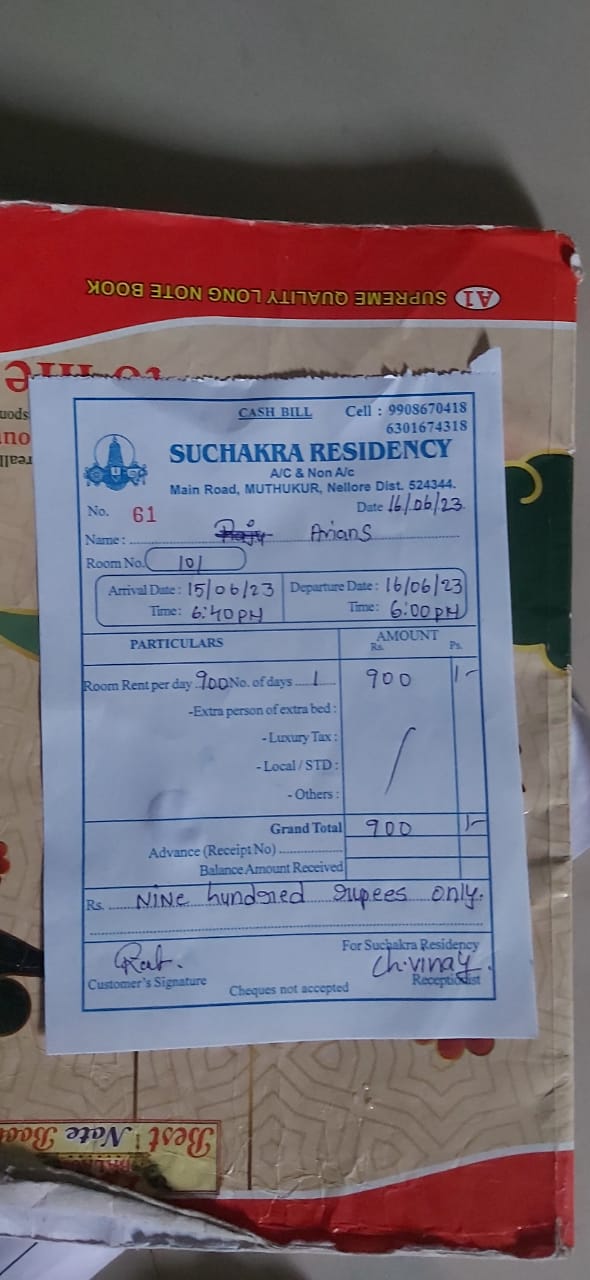 A1 SUPREME QUALITY LONG NOTE BOOK
CASH BILL Cell : 9908670418
6301674318
SUCHAKRA RESIDENCY
A/C & Non A/c
Main Road, MUTHUKUR, Nellore Dist. 524344.
No. 61 Date 16/06/23
Name : Arians
Room No. 101
Arrival Date : 15/06/23 Departure Date : 16/06/23
Time : 6:40 PM Time : 6:00 PM
PARTICULARS AMOUNT
Rs. Ps.
Room Rent per day 900 No. of days 1 900 /-
-Extra person of extra bed :
- Luxury Tax :
- Local / STD :
- Others :
Grand Total 900 /-
Advance (Receipt No)
Balance Amount Received
Rs. Nine hundred rupees only.
For Suchakra Residency
Ch.vinay.
Customer's Signature Receptionist
Cheques not accepted
Best Note Book